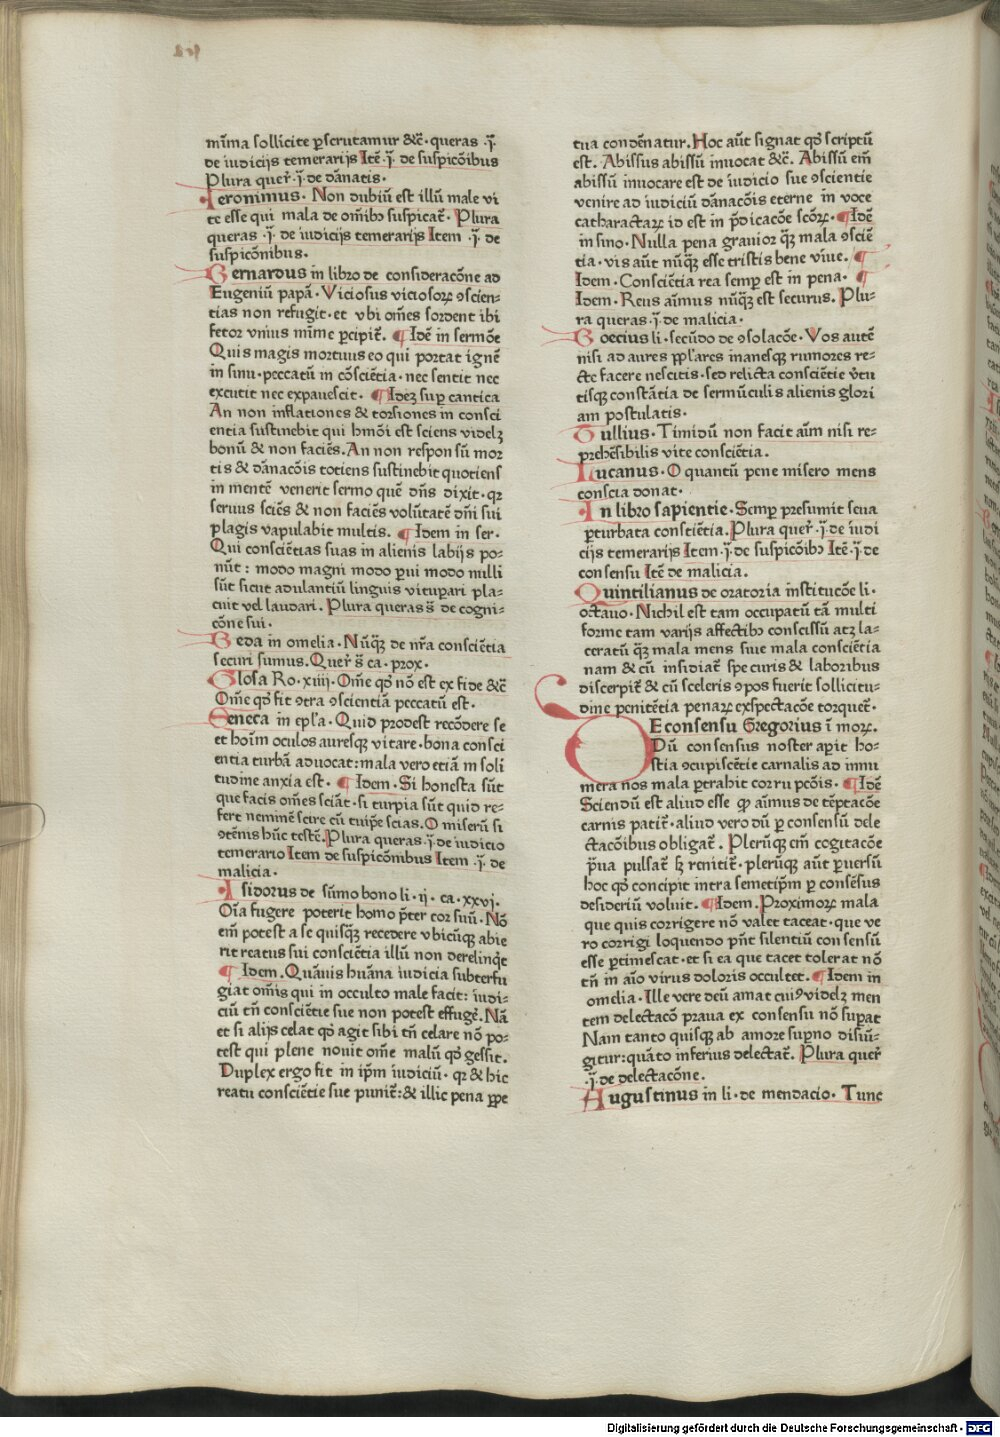 mīma sollicite ꝑscrutamur &c̄· queras ·ī·
de iudicijs temerarijs Itē ·ī· de suspicōibus
Plura quer̄ ·ī· de dānatis·
Ieronimus· Non dubiū est illū male vi
te esse qui mala de om̄ibꝫ suspicat̄· Plura
queras ·ī· de iudicijs temerarijs Item ·ī· de
suspicōnibus·
Bernardus in libro de consideracōne ad
Eugeniū papā· Viciosus viciosoꝝ ꝯscien-
tias non refugit· et vbi om̄es sordent ibi
fetor vnius mīme ꝑcipit̄. ¶Idē in sermōe
Quis magis mortuus eo qui portat ignē
in sinu· peccatū in cōsciētia· nec sentit nec
excutit nec expauescit· ¶Ideꝫ suꝑ cantica
An non inflationes & torsiones in consci
entia sustinebit qui hm̄oi est sciens videlꝫ
bonū & non faciēs. An non responsū mor
tis & dānacōis totiens sustinebit quotiens
in mentē venerit sermo quē dn̄s dixit· qꝛ
seruus sciēs & non faciēs volūtatē dn̄i sui
plagis vapulabit multis. ¶Idem in ser·
Qui consciētias suas in alienis labijs po-
nūt: modo magni modo ꝑui modo nulli
sūt sicut adulantiū linguis vituꝑari pla-
cuit vel laudari. Plura queras s̄ de cogni-
cōne sui·
Beda in omelia· Nūq̄ꝫ de nr̄a consciētia
securi sumus. Quer̄ s̄ ca· prox·
Glosa Ro· xiiii· Om̄e qꝙ nō est ex fide &c̄
Om̄e qꝙ fit ꝯtra ꝯscientiā peccatū est·
Seneca in epl̄a· Quid prodest recōdere se
et hoīm oculos auresqꝫ vitare· bona consci
entia turbā aduocat: mala vero etiā in soli
tudine anxia est· ¶Idem· Si honesta sūt
que facis om̄es sciāt· si turpia sūt quid re-
fert neminē scire cū tuip̄e scias. O miserū si
ꝯtēnis hūc testē. Plura queras ·ī· de iudicio
temerario Item de suspicōnibus Item ·ī· de
malicia·
Isidorus de sūmo bono li· ij· ca· xxvj·
Oīa fugere poterit homo p̄ter cor suū· Nō
em̄ potest a se quisq̄ꝫ recedere vbicūqꝫ abie
rit reatus sui consciētia illū non derelinq̄t
¶Idem· Quāuis hūana iudicia subterfu
giat om̄is qui in occulto male facit: iudi-
ciū tn̄ consciētie sue non potest effugē. Nā
et si alijs celat qꝙ agit sibi tn̄ celare nō po-
test qui plene nouit om̄e malū qꝙ gessit.
Duplex ergo fit in ip̄m iudiciū· qꝛ & hic
reatu consciētie sue punit̄: & illic pena ꝑpe
tua condēnatur. Hoc aūt signat qꝙ scriptū
est. Abissus abissū inuocat &c̄. Abissū em̄
abissū inuocare est de iudicio sue ꝯscientie
venire ad iudiciū dānacōis eterne in voce
catharactaꝝ id est in p̄dicacōe scōꝝ· ¶Idē
in sino· Nulla pena grauior q̄ꝫ mala ꝯsciē
tia· vis aūt nūq̄ꝫ esse tristis bene viue. ¶
Idem· Consciētia rea semꝑ est in pena· ¶
Idem· Reus aīmus nūq̄ꝫ est securus. Plu-
ra queras ·ī· de malicia·
Boecius li· secūdo de ꝯsolacōe· Vos autē
nisi ad aures ppl̄ares inanesqꝫ rumores re-
cte facere nescitis· sed relicta consciētie v̄tu
tisqꝫ constātia de sermūculis alienis glori
am postulatis·
Tullius· Timidū non facit aīm nisi re-
prehēsibilis vite consciētia.
Lucanus· O quantū pene misero mens
conscia donat·
In libro sapientie· Semꝑ presumit seua
ꝑturbata consciētia. Plura quer̄ ·ī· de iudi
cijs temerarijs Item ·ī· de suspicōibꝫ Itē ·ī· de
consensu Itē de malicia.
Quintilianus de oratoria institucōe li·
octauo· Nichil est tam occupatū tā multi
forme tam varijs affectibꝫ conscissū atꝫ la-
ceratū q̄ꝫ mala mens siue mala consciētia
nam & cū insidiat̄ spe curis & laboribus
discerpit̄ & cū sceleris ꝯpos fuerit sollicitu-
dine penitētia penaꝝ exspectacōe torquet̄·
De consensu Gregorius ī moꝝ.
Dū consensus noster aꝑit ho-
stia ꝯcupiscētie carnalis ad innu
mera nos mala ꝑtrahit corrupcōis· ¶Idē
Sciendū est aliud esse ꝙ aīmus de tēptacōe
carnis patit̄· aliud vero dū ꝑ consensū dele
ctacōibus obligat̄. Pleruqꝫ em̄ cogitacōe
p̄ua pulsat̄ sꝫ renitit̄· pleruqꝫ aūt ꝑuersū
hoc qꝙ concipit intra semetip̄m ꝑ consēsus
desideriū voluit. ¶Idem. Proximoꝝ mala
que quis corrigere nō valet taceat· que ve
ro corrigi loquendo pn̄t silentiū consensū
esse ꝑtimescat· et si ea que tacet tolerat nō
tn̄ in aīo virus doloris occultet. ¶Idem in
omelia· Ille vere deū amat cuiꝯ videlꝫ men
tem delectacō praua ex consensu nō suꝑat
Nam tanto quisqꝫ ab amore suꝑno disiū-
gitur: quāto inferius delectat̄. Plura quer̄
·ī· de delectacōne.
Augustinus in li· de mendacio· Tunc
Digitalisierung gefördert durch die Deutsche Forschungsgemeinschaft - DFG